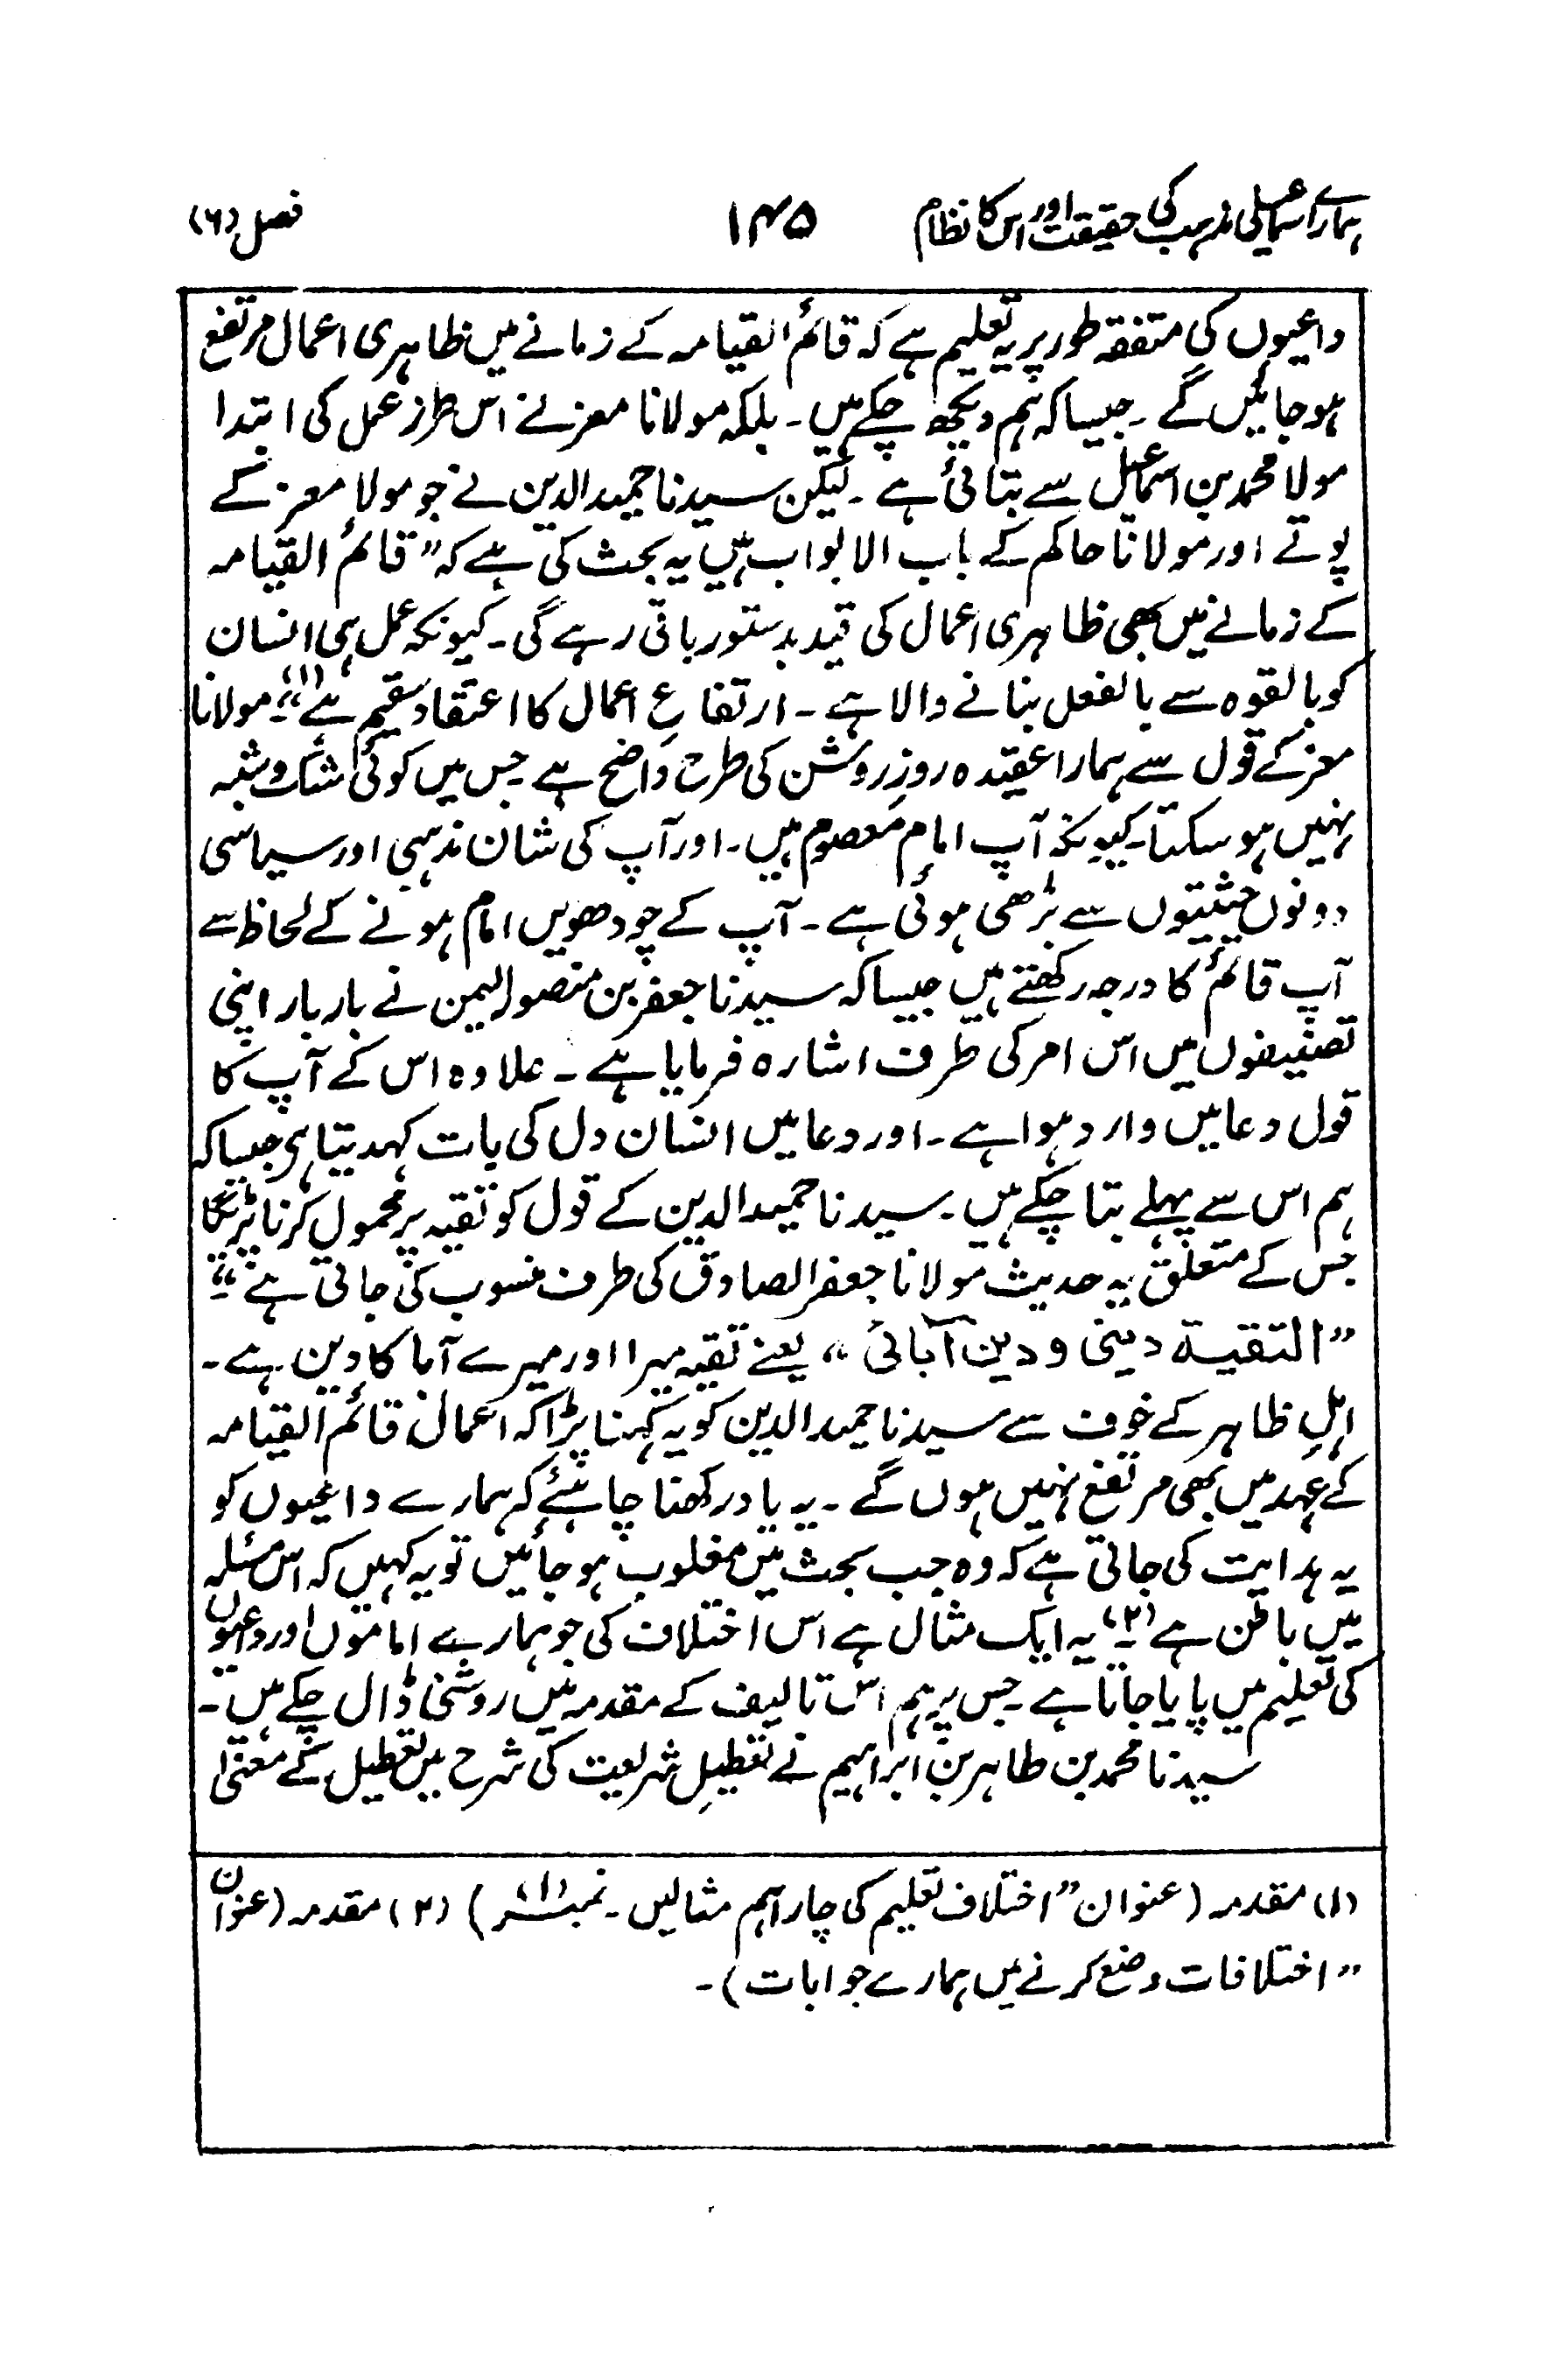 ہمارے اسماعیلی مذہب کی حقیقت اور اس کا نظام ۱۴۵ فصل (۶)
داعیوں کی متفقہ طور پر یہ تعلیم ہے کہ قائم القیامہ کے زمانے میں ظاہری اعمال مرتفع
ہو جائیں گے ۔ جیسا کہ ہم دیکھ چکے ہیں ۔ بلکہ مولانا معز نے اس طرز عمل کی ابتدا
مولا محمد بن اسمٰعیل سے بتائی ہے ۔ لیکن سیدنا حمید الدین نے جو مولا معز کے
پوتے اور مولانا حاکم کے باب الابواب ہیں یہ بحث کی ہے کہ ” قائم القیامہ
کے زمانے میں بھی ظاہری اعمال کی قید بدستور باقی رہے گی ۔ کیونکہ عمل ہی انسان
کو بالقوہ سے بالفعل بنانے والا ہے ۔ ارتفاعِ اعمال کا اعتقاد سقیم ہے “ (۱) ۔ مولانا
معز کے قول سے ہمارا عقیدہ روزِ روشن کی طرح واضح ہے جس میں کوئی شک و شبہ
نہیں ہو سکتا ۔ کیونکہ آپ امام معصوم ہیں ۔ اور آپ کی شان مذہبی اور سیاسی
دونوں حیثیتوں سے بڑھی ہوئی ہے ۔ آپ کے چودھویں امام ہونے کے لحاظ سے
آپ قائم کا درجہ رکھتے ہیں جیسا کہ سیدنا جعفر بن منصور الیمن نے بار بار اپنی
تصنیفوں میں اس امر کی طرف اشارہ فرمایا ہے ۔ علاوہ اس کے آپ کا
قول دعا میں وارد ہوا ہے ۔ اور دعا میں انسان دل کی بات کہدیتا ہی جیسا کہ
ہم اس سے پہلے بتا چکے ہیں ۔ سیدنا حمید الدین کے قول کو تقیہ پر محمول کرنا پڑیگا
جس کے متعلق یہ حدیث مولانا جعفر الصادق کی طرف منسوب کی جاتی ہے “
” التقیۃ دینی و دین آبائی “ یعنے تقیہ میرا اور میرے آبا کا دین ہے ۔
اہلِ ظاہر کے خوف سے سیدنا حمید الدین کو یہ کہنا پڑا کہ اعمال قائم القیامہ
کے عہد میں بھی مرتفع نہیں ہوں گے ۔ یہ یاد رکھنا چاہیئے کہ ہمارے داعیوں کو
یہ ہدایت کی جاتی ہے کہ وہ جب بحث میں مغلوب ہو جائیں تو یہ کہیں کہ اس مسئلہ
میں باطن ہے (۲) ۔ یہ ایک مثال ہے اس اختلاف کی جو ہمارے اماموں اور داعیوں
کی تعلیم میں پایا جاتا ہے ۔ جس پر ہم اس تالیف کے مقدمہ میں روشنی ڈال چکے ہیں ۔
سیدنا محمد بن طاہر بن ابراہیم نے تعطیلِ شریعت کی شرح میں تعطیل کے معنی
(۱) مقدمہ ( عنوان ” اختلاف تعلیم کی چار اہم مثالیں ۔ نمبر (۱) ) (۲) مقدمہ ( عنوان
” اختلافات وضع کرنے میں ہمارے جوابات ) ۔